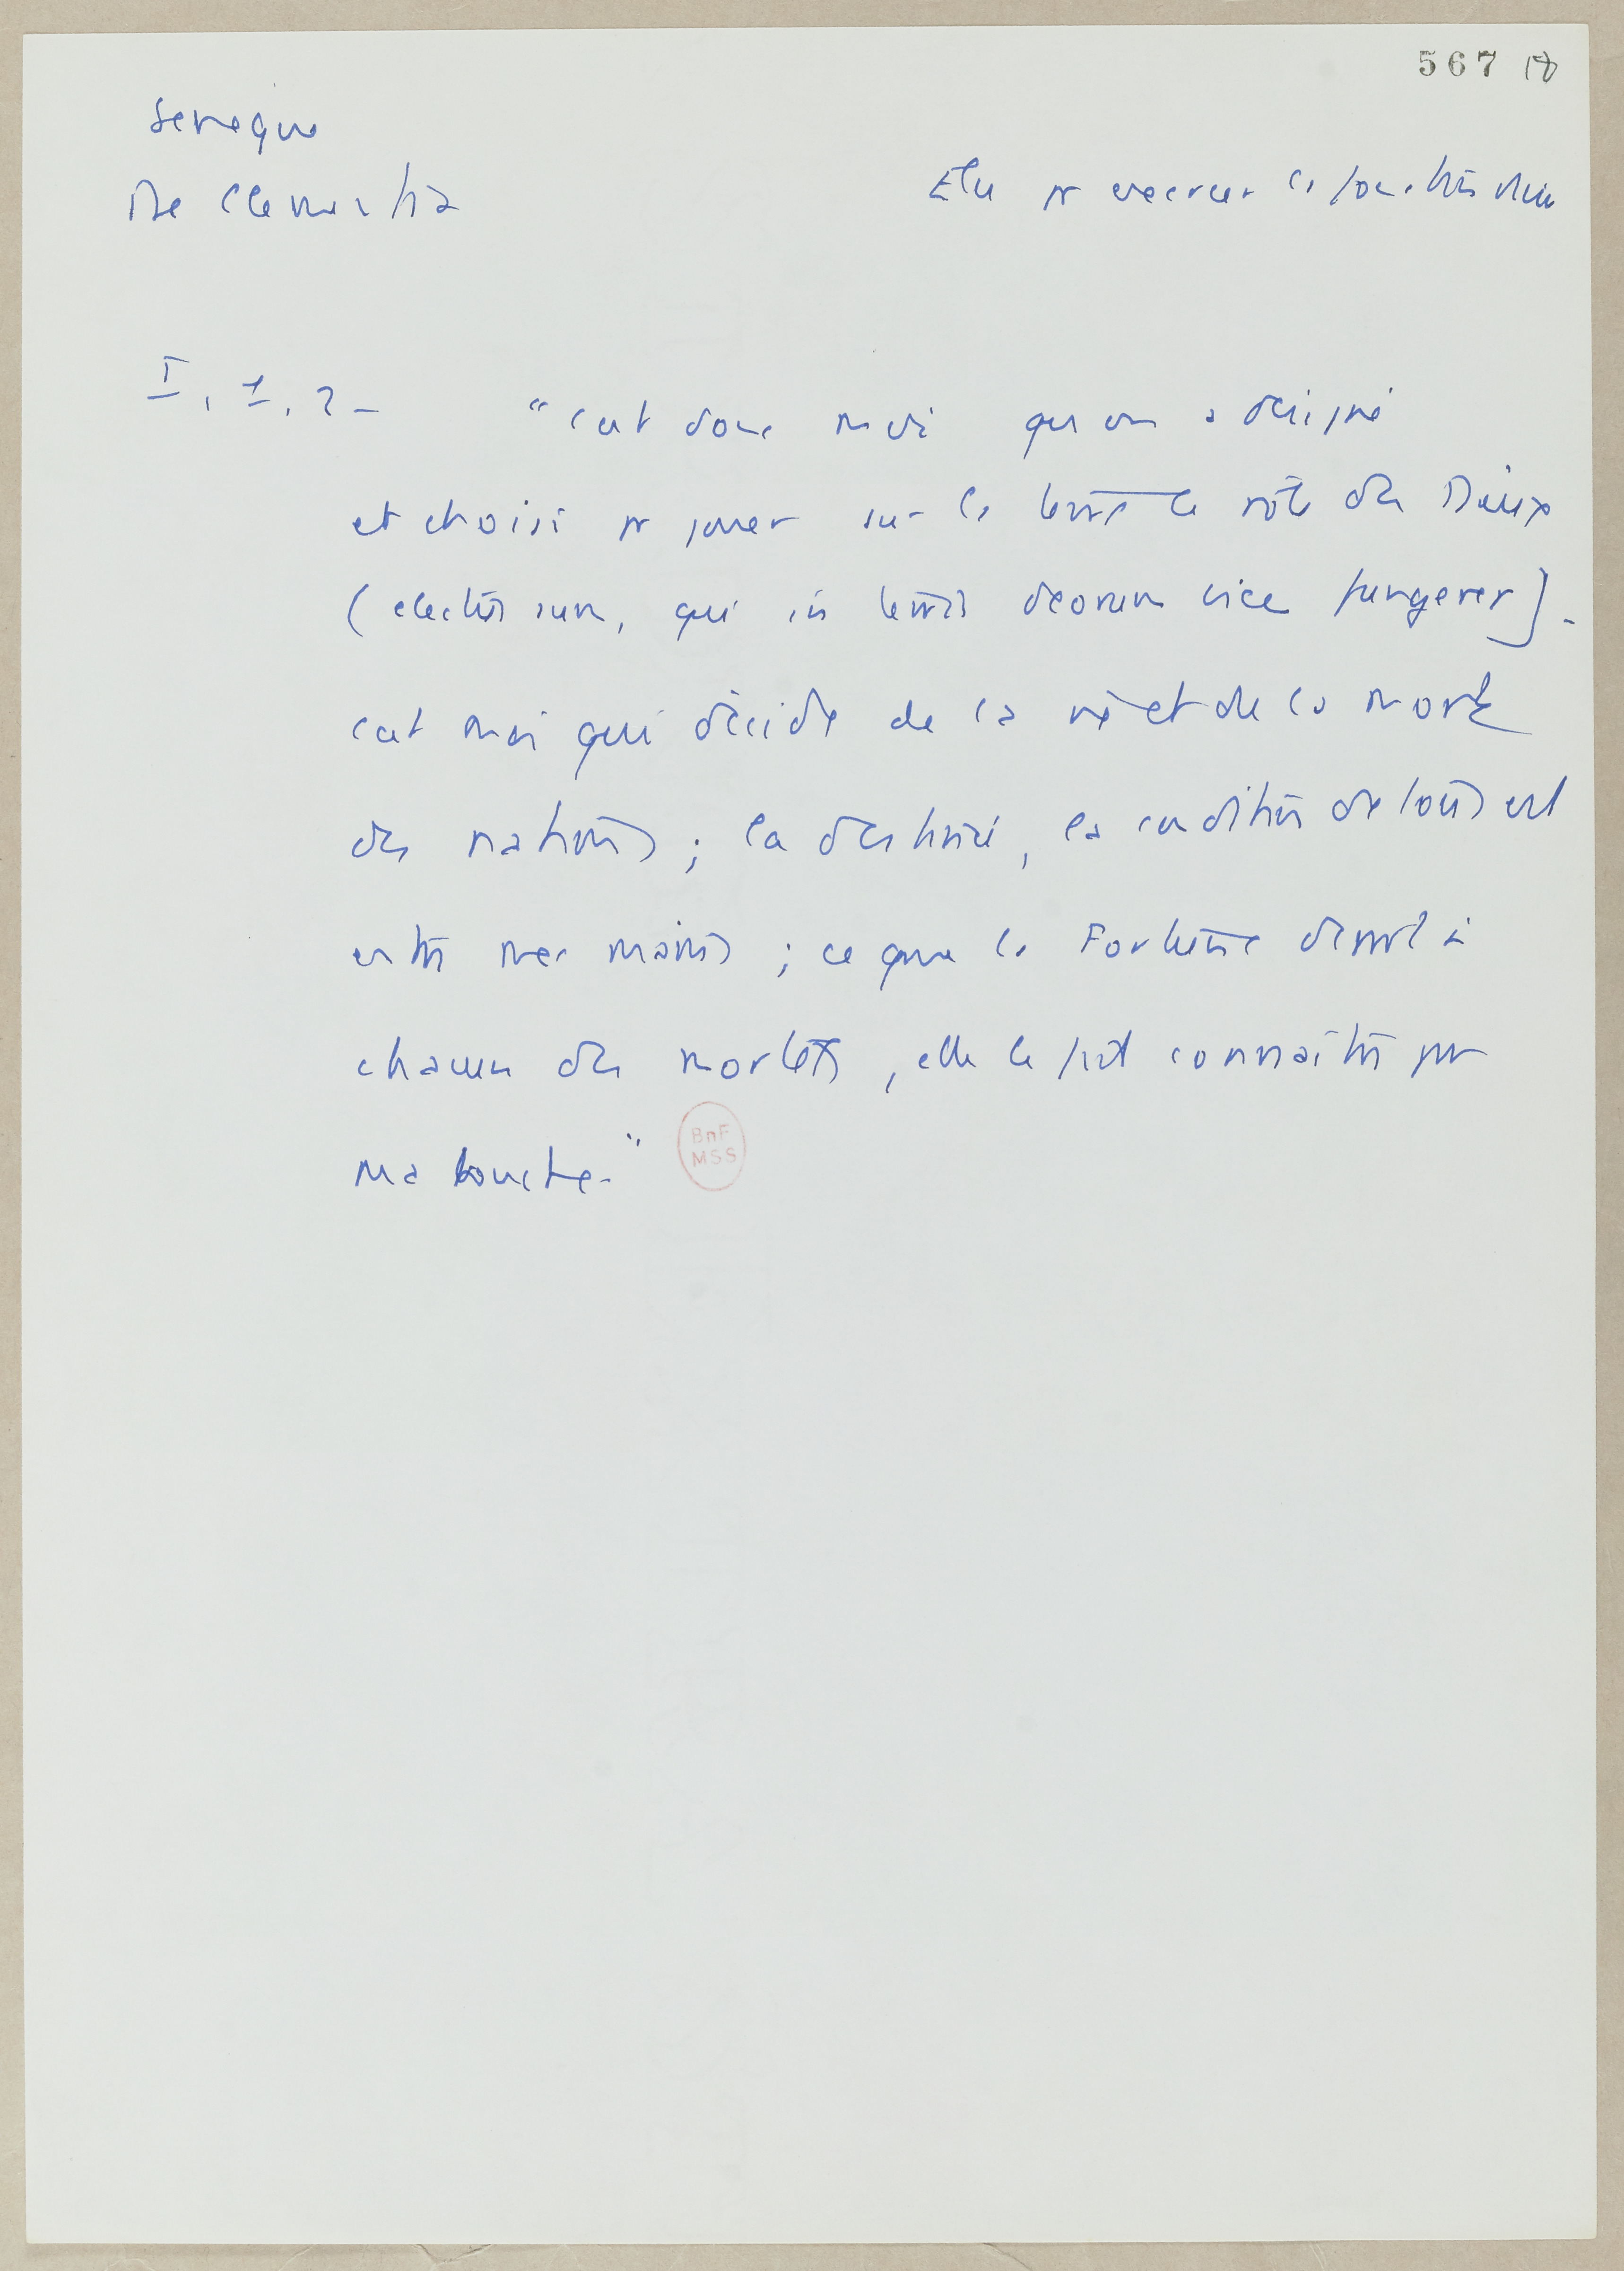 567 18
Seneque
De Clementia
Elu pr exercer la fonction divine
I, 1, 2 –
"c'est donc moi qu'on a désigné
et choisi pr jouer sur la terre le rôle des Dieux
(electus sum, qui in terris deorum vice fungerer).
c'est moi qui décide de la vie et de la mort
des nations ; la destinée, la condition de tous est
entre mes mains ; ce que la Fortune départ à
chacun des mortels, elle le fait connaître par
ma bouche."
BnF
MSS